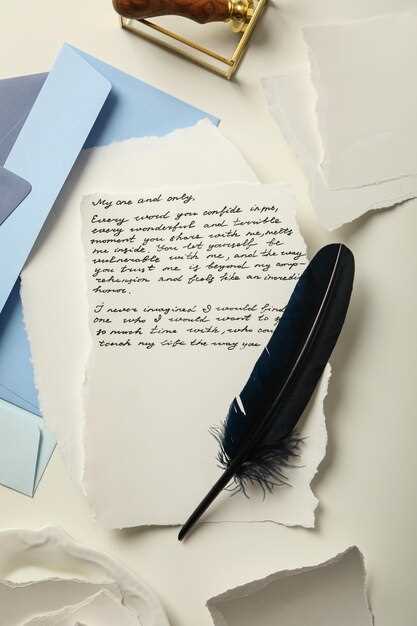 My one and only,
Every word you confide in me,
every wonderful and terrible
moment you share with me, melts
me inside. You let yourself be
vulnerable with me, and the way
you trust me is beyond my comp-
rehension and feels like an incredi
honor.
I never imagined I would find
one who I would want to s
so much time with, who cou
touch my life the way you